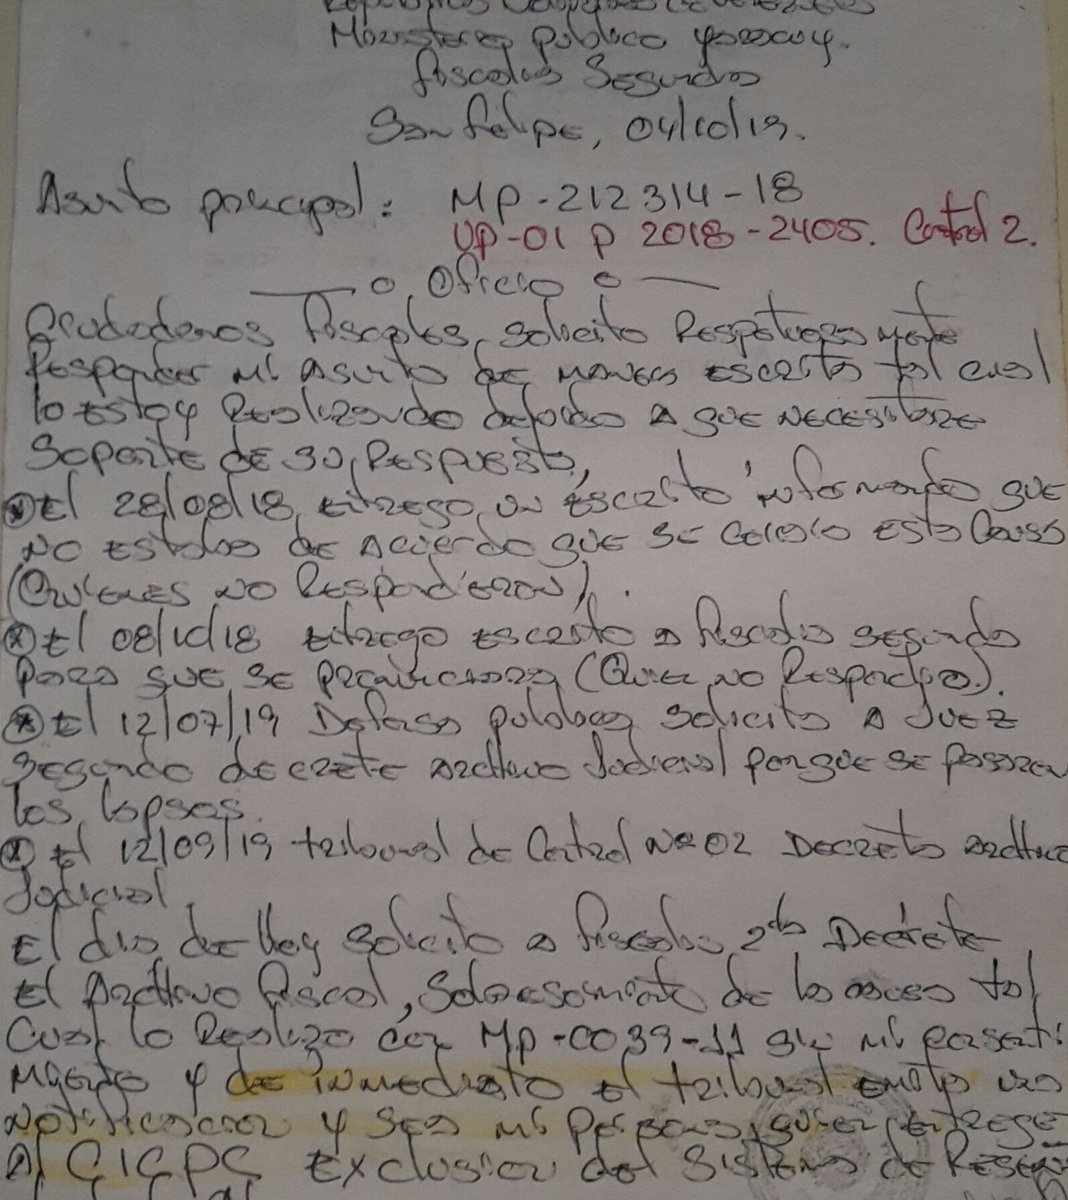 Republica Bolivariana de Venezuela
Ministerio Publico Yaracuy.
fiscalia Segunda
San Felipe, 04/10/19.
Asunto principal: MP-212314-18
UP-01 P 2018-2405. Control 2.
Oficio
Ciudadanos fiscales, solicito Respetuosamente
Responder mi asunto de manera escrita tal cual
lo estoy Realizando debido a que necesitare
soporte de su Respuesta,
El 28/08/18, Entrego un escrito informando que
no estaba de acuerdo que se esta Causa
(Quienes no Respondieron).
El 08/10/18 Entrego escrito a fiscalia segunda
para que se pronunciara (Quien no Respondio).
El 12/07/19 Defensa publica solicito a Juez
Segundo decrete archivo Judicial porque se pasaron
los lapsos.
El 12/09/19 tribunal de Control Nº 02 Decreto archivo
Judicial.
El dia de Hoy solicito a fiscalia 2da Decrete
El Archivo fiscal, Sobreseimiento de la causa tal
Cual lo Realizo con MP-0039-11 sin mi consenti
miento y de inmediato el tribunal emita una
notificacion y sea mi persona quien entregue
Al CICPC Exclusion del Sistema de